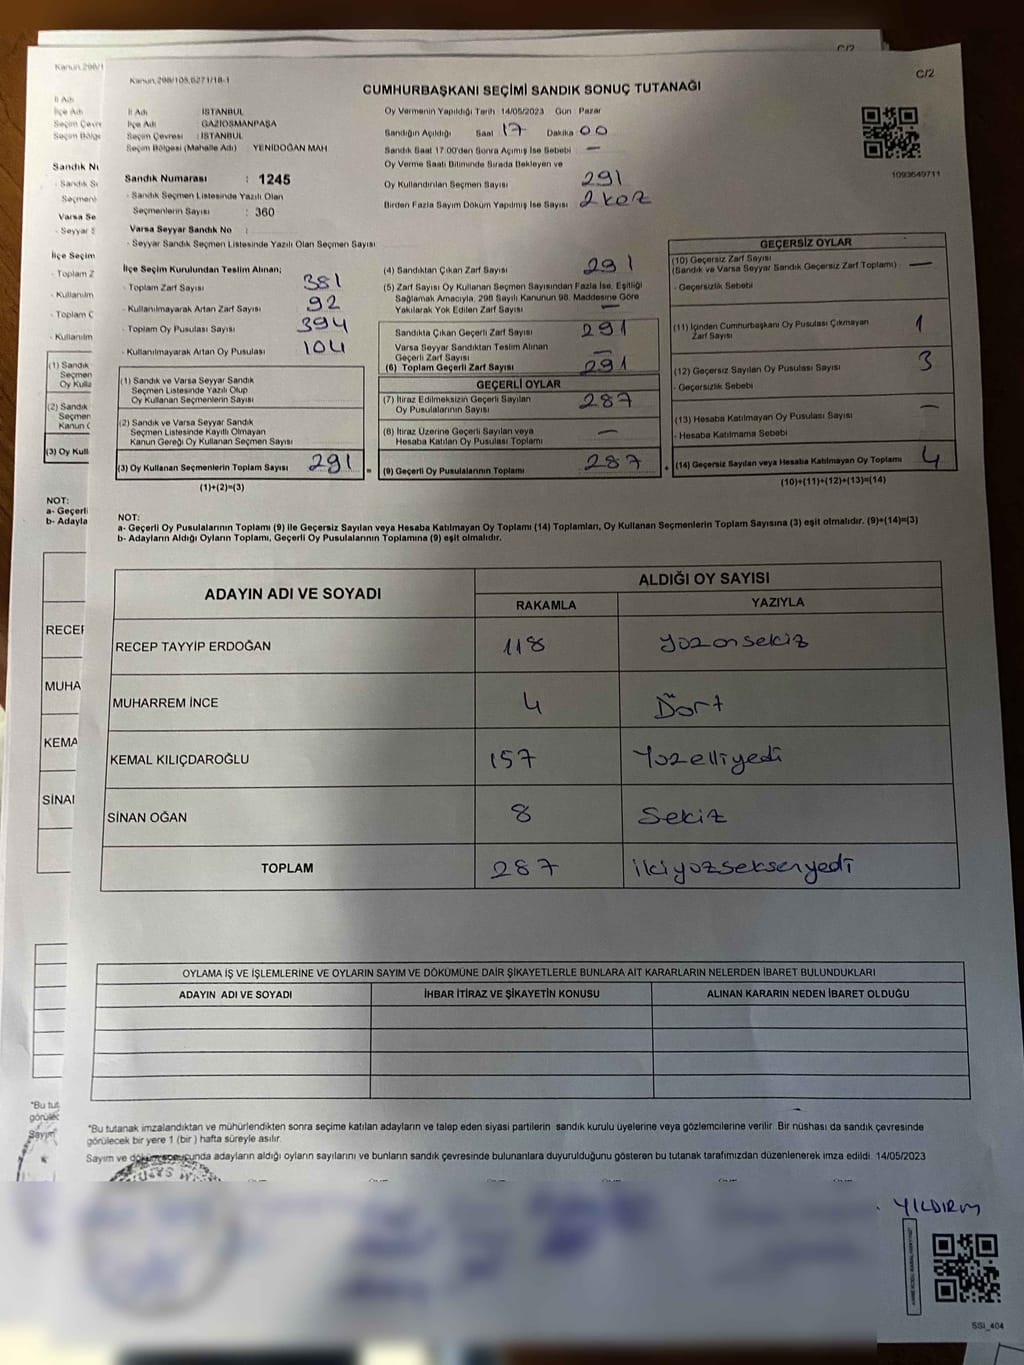 C/2
Kanun, 298/1
Kanun, 298/105,6271/18-1
C/2
CUMHURBAŞKANI SEÇİMİ SANDIK SONUÇ TUTANAĞI
İl Adı
İlçe Adı
Seçim Çevre
Seçim Bölge
Sandık Nu
İl Adı : İSTANBUL
İlçe Adı GAZİOSMANPAŞA
Seçim Çevresi : İSTANBUL
Seçim Bölgesi (Mahalle Adı) : YENİDOĞAN MAH
Sandık Numarası : 1245
- Sandık Seçmen Listesinde Yazılı Olan
Seçmenlerin Sayısı : 360
Varsa Seyyar Sandık No :
- Seyyar Sandık Seçmen Listesinde Yazılı Olan Seçmen Sayısı
Oy Vermenin Yapıldığı Tarih : 14/05/2023 Gün : Pazar
Sandığın Açıldığı Saat 17 Dakika 00
Sandık Saat 17:00'den Sonra Açılmış İse Sebebi : —
Oy Verme Saati Bitiminde Sırada Bekleyen ve
Oy Kullandırılan Seçmen Sayısı 291
Birden Fazla Sayım Döküm Yapılmış İse Sayısı 2 kez
1093649711
İlçe Seçim Kurulundan Teslim Alınan;
- Toplam Zarf Sayısı 381
- Kullanılmayarak Artan Zarf Sayısı 92
- Toplam Oy Pusulası Sayısı 394
- Kullanılmayarak Artan Oy Pusulası 104
(1) Sandık ve Varsa Seyyar Sandık
Seçmen Listesinde Yazılı Olup
Oy Kullanan Seçmenlerin Sayısı
(2) Sandık ve Varsa Seyyar Sandık
Seçmen Listesinde Kayıtlı Olmayan
Kanun Gereği Oy Kullanan Seçmen Sayısı
(3) Oy Kullanan Seçmenlerin Toplam Sayısı 291 =
(1)+(2)=(3)
(4) Sandıktan Çıkan Zarf Sayısı 291
(5) Zarf Sayısı Oy Kullanan Seçmen Sayısından Fazla İse, Eşitliği
Sağlamak Amacıyla, 298 Sayılı Kanunun 98. Maddesine Göre
Yakılarak Yok Edilen Zarf Sayısı —
Sandıkta Çıkan Geçerli Zarf Sayısı 291
Varsa Seyyar Sandıktan Teslim Alınan
Geçerli Zarf Sayısı —
(6) Toplam Geçerli Zarf Sayısı 291
GEÇERLİ OYLAR
(7) İtiraz Edilmeksizin Geçerli Sayılan
Oy Pusulalarının Sayısı 287
(8) İtiraz Üzerine Geçerli Sayılan veya
Hesaba Katılan Oy Pusulası Toplamı —
(9) Geçerli Oy Pusulalarının Toplamı 287 +
GEÇERSİZ OYLAR
(10) Geçersiz Zarf Sayısı
(Sandık ve Varsa Seyyar Sandık Geçersiz Zarf Toplamı) —
- Geçersizlik Sebebi
(11) İçinden Cumhurbaşkanı Oy Pusulası Çıkmayan
Zarf Sayısı 1
(12) Geçersiz Sayılan Oy Pusulası Sayısı 3
- Geçersizlik Sebebi
(13) Hesaba Katılmayan Oy Pusulası Sayısı —
- Hesaba Katılmama Sebebi
(14) Geçersiz Sayılan veya Hesaba Katılmayan Oy Toplamı 4
(10)+(11)+(12)+(13)=(14)
NOT:
a- Geçerli Oy Pusulalarının Toplamı (9) ile Geçersiz Sayılan veya Hesaba Katılmayan Oy Toplamı (14) Toplamları, Oy Kullanan Seçmenlerin Toplam Sayısına (3) eşit olmalıdır. (9)+(14)=(3)
b- Adayların Aldığı Oyların Toplamı, Geçerli Oy Pusulalarının Toplamına (9) eşit olmalıdır.
ADAYIN ADI VE SOYADI ALDIĞI OY SAYISI
RAKAMLA YAZIYLA
RECEP TAYYİP ERDOĞAN 118 yüzonsekiz
MUHARREM İNCE 4 Dört
KEMAL KILIÇDAROĞLU 157 Yüzelliyedi
SİNAN OĞAN 8 Sekiz
TOPLAM 287 ikiyüzseksenyedi
OYLAMA İŞ VE İŞLEMLERİNE VE OYLARIN SAYIM VE DÖKÜMÜNE DAİR ŞİKAYETLERLE BUNLARA AİT KARARLARIN NELERDEN İBARET BULUNDUKLARI
ADAYIN ADI VE SOYADI İHBAR İTİRAZ VE ŞİKAYETİN KONUSU ALINAN KARARIN NEDEN İBARET OLDUĞU
"Bu tutanak imzalandıktan ve mühürlendikten sonra seçime katılan adayların ve talep eden siyasi partilerin sandık kurulu üyelerine veya gözlemcilerine verilir. Bir nüshası da sandık çevresinde
görülecek bir yere 1 (bir ) hafta süreyle asılır.
Sayım ve dökümü sonucunda adayların aldığı oyların sayılarını ve bunların sandık çevresinde bulunanlara duyurulduğunu gösteren bu tutanak tarafımızdan düzenlenerek imza edildi. 14/05/2023
YILDIRIM
SSi_404